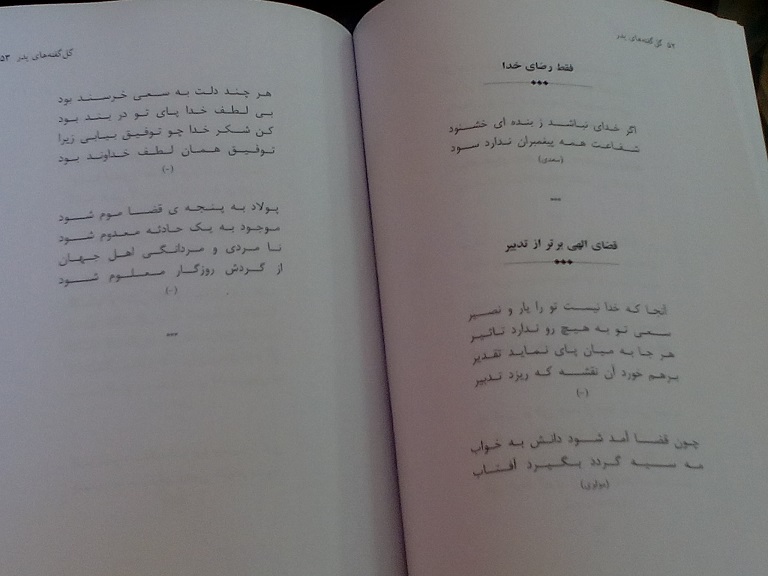 ۵۲ گل گفته‌های پدر
فقط رضای خدا
اگر خدای نباشد ز بنده ای خشنود
شفاعت همه پیغمبران ندارد سود
(سعدی)
***
قضای الهی برتر از تدبیر
آنجا که خدا نیست تو را یار و نصیر
سعی تو به هیچ رو ندارد تاثیر
هر جا به میان پای نماید تقدیر
برهم خورد آن نقشه که ریزد تدبیر
(-)
چون قضا آمد شود دانش به خواب
مه سیه گردد بگیرد آفتاب
(مولوی)
گل گفته‌های پدر ۵۳
هر چند دلت به سعی خرسند بود
بی لطف خدا پای تو در بند بود
کن شکر خدا چو توفیق بیابی زیرا
توفیق همان لطف خداوند بود
(-)
پولاد به پنجه ی قضا موم شود
موجود به یک حادثه معدوم شود
نا مردی و مردانگی اهل جهان
از گردش روزگار معلوم شود
(-)
***